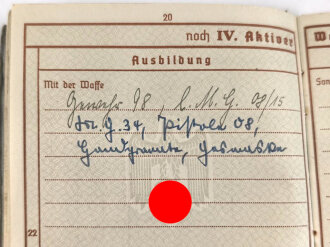 20
noch IV. Aktiver
Ausbildung
Mit der Waffe
Gewehr 98, l. M. G. 08/15
M. G. 34, Pistole 08,
Handgranate, Gasmaske
22